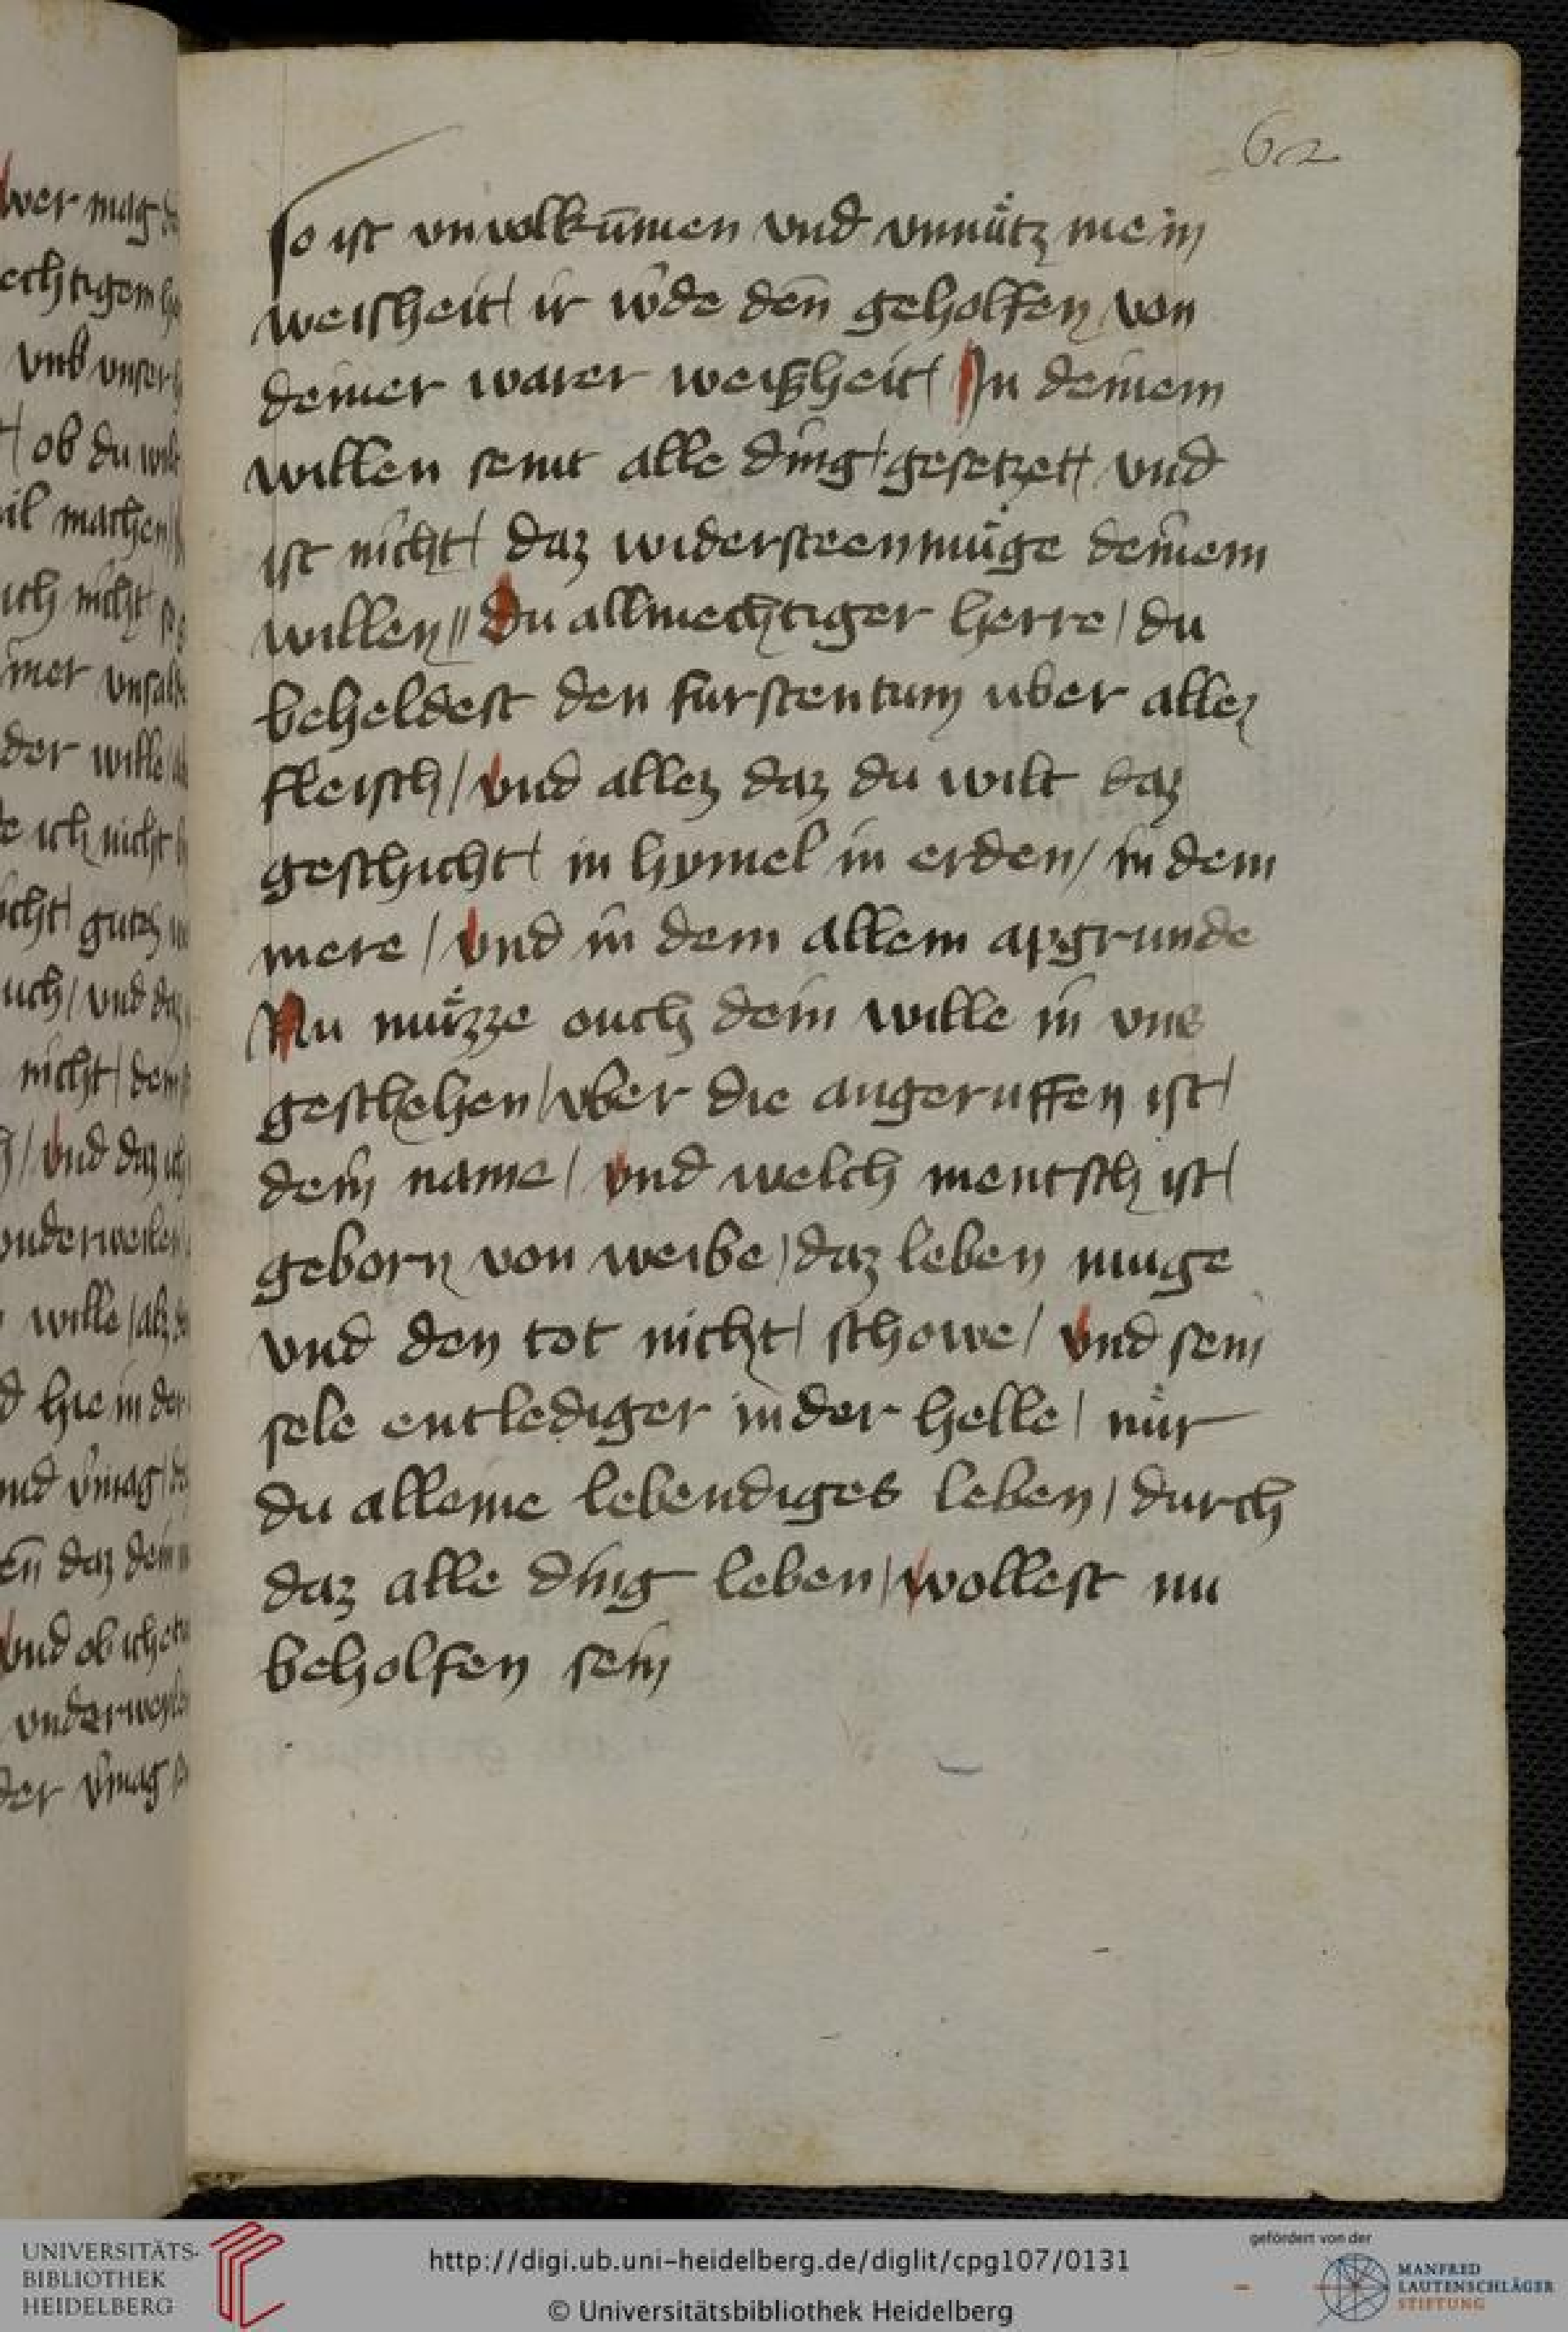 62
so ist unvolkūmen vnd vnnuͤtz mein
weisheit / ir w̓de den̄ geholfen von
deiner warer weisheit / In deinem
willen seint alle ding / gesetzet / vnd
ist nicht / daz widersteen muͤge deinem
willen // Du allmechtiger herre / du
beheldest den furstentum uber allez
fleisch / vnd allez daz du wilt daz
geschicht / in hymel in erden / in dem
mere / vnd in dem allem apgrunde
Nu muͤzze ouch dein wille in vns
geschehen / vber die angeruffen ist /
dein name / vnd welch mentsch ist /
geborn von weibe / daz leben muge
vnd den tot nicht / schowe / vnd sein
sele entlediger in der helle / nuͤr
du alleine lebendiges leben / durch
daz alle ding leben / wollest nu
beholfen sein
wer mag
vnd vnser
/ ob du wilt
il machen
ich nicht so
der wille
ich nicht
icht gutz
uch / vnd daz
nicht / dein
/ vnd daz ich
wille / alz
hie in der
vmag
daz dein
vnd ob ich
der vmag
UNIVERSITÄTS-
BIBLIOTHEK
HEIDELBERG
http://digi.ub.uni-heidelberg.de/diglit/cpg107/0131
© Universitätsbibliothek Heidelberg
gefördert von der
MANFRED
LAUTENSCHLÄGER
STIFTUNG